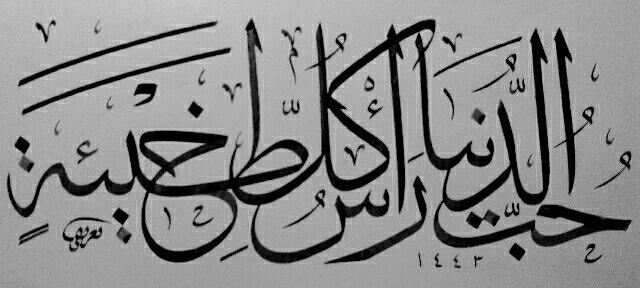 حُبُّ الدُّنْيَا رَأْسُ كُلِّ خَطِيئَةٍ
١٤٤٣